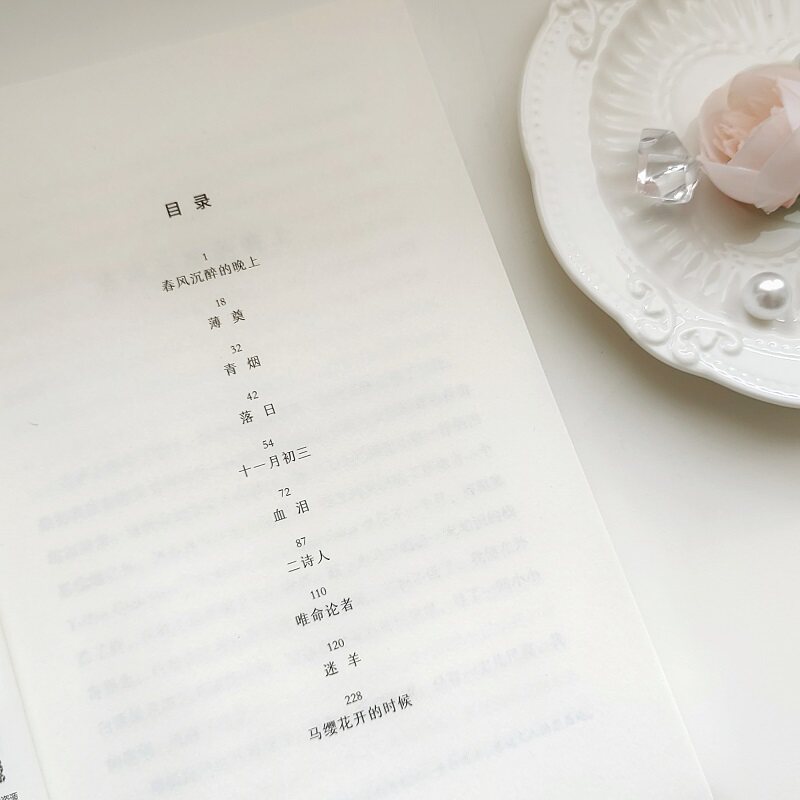 目录
1
春风沉醉的晚上
18
薄奠
32
青烟
42
落日
54
十一月初三
72
血泪
87
二诗人
110
唯命论者
120
迷羊
228
马缨花开的时候